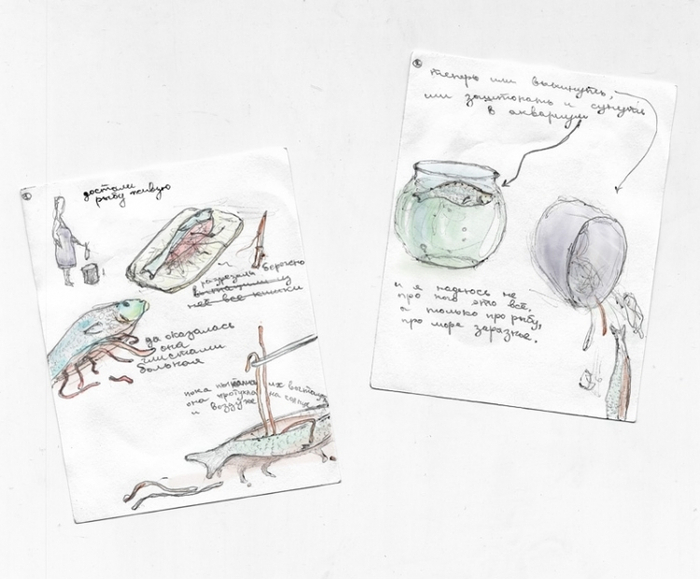 ①
достали
рыбу живую
и разрезали ворочено
вытащили у
неё все кишки
да оказалась
она
глистами
больная
пока пыталась их вытащить
она протухла на солнце
и воздухе
②
теперь или выкинуть,
или заштопать и сунуть
в аквариум
и я надеюсь не
про это всё,
а только про рыбу,
про море заразное.